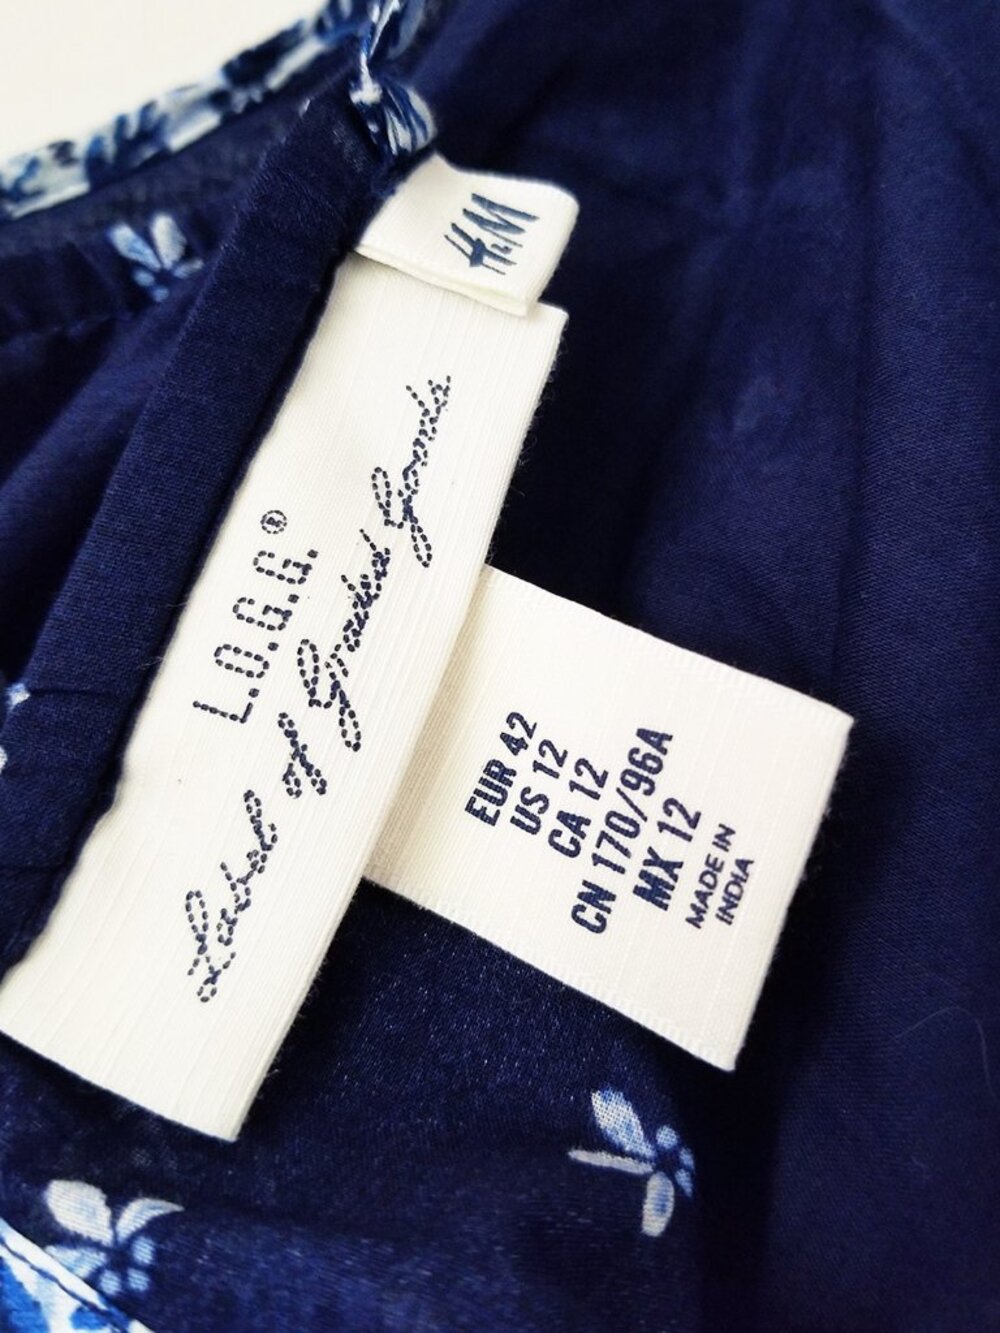 H&M
L.O.G.G.®
Label of Graded Goods
EUR 42
US 12
CA 12
CN 170/96A
MX 12
MADE IN
INDIA